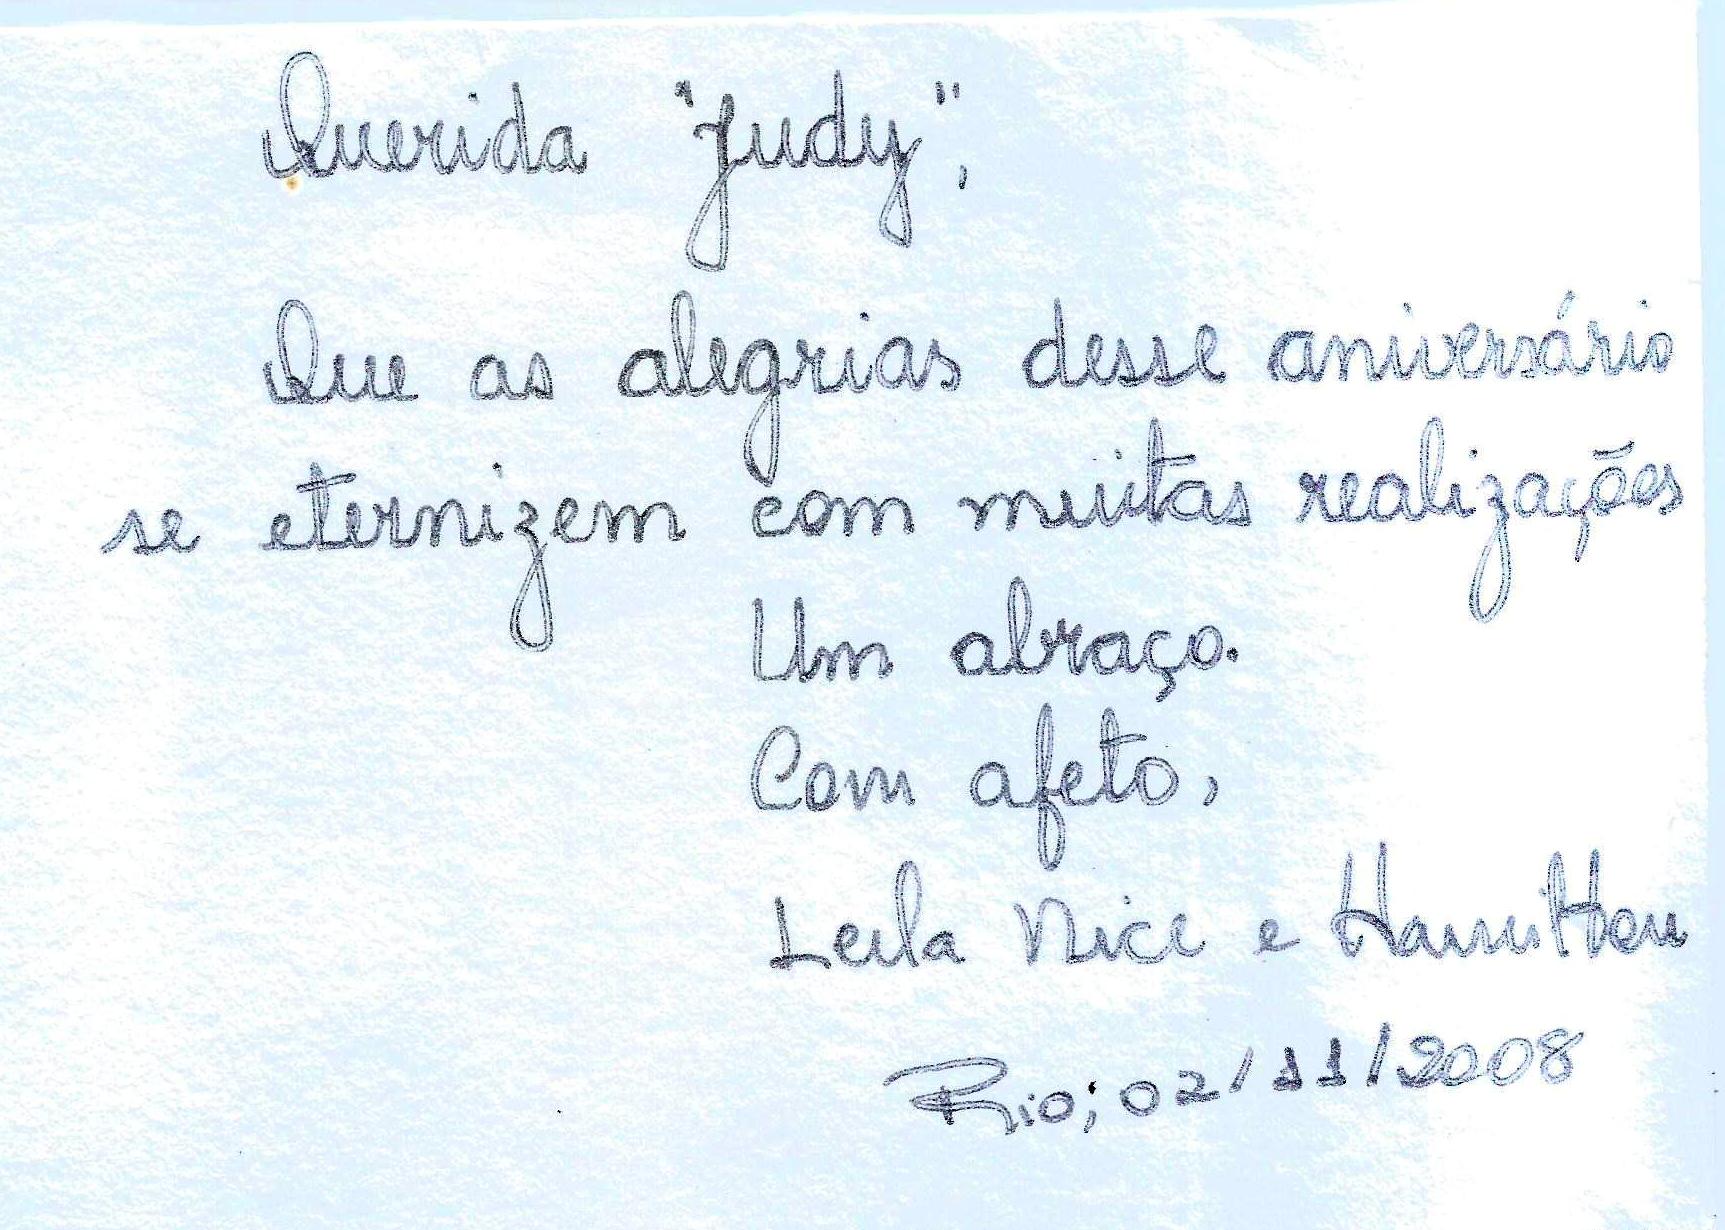 Querida "Judy",
Que as alegrias desse aniversário
se eternizem com muitas realizações
Um abraço.
Com afeto,
Leila Nice e Hamilton
Rio; 02/11/2008